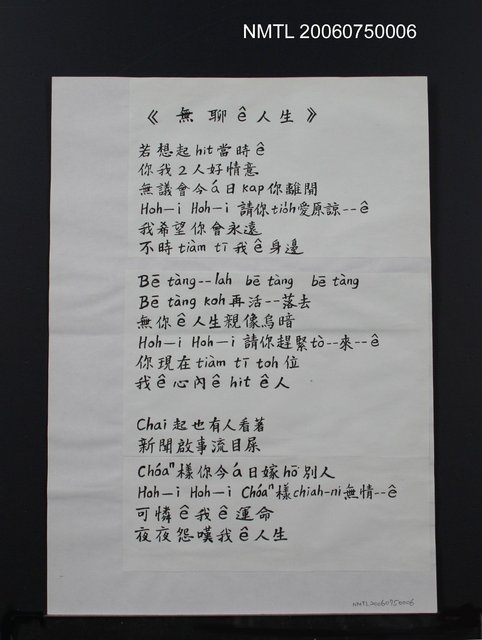 NMTL 20060750006
《無聊ê人生》
若想起hit當時ê
你我2人好情意
無議會今á日kap你離開
Hoh—i Hoh—i 請你tio̍h愛原諒--ê
我希望你會永遠
不時tiàm tī我ê身邊
Bē tàng--lah bē tàng bē tàng
Bē tàng koh再活--落去
無你ê人生親像烏暗
Hoh—i Hoh—i 請你趕緊tò--來--ê
你現在tiàm tī toh位
我ê心內ê hit ê人
Chai起也有人看著
新聞啟事流目屎
Chóaⁿ樣你今á日嫁hō͘別人
Hoh—i Hoh—i Chóaⁿ樣chiah-ni無情--ê
可憐ê我ê運命
夜夜怨嘆我ê人生
NMTL20060750006